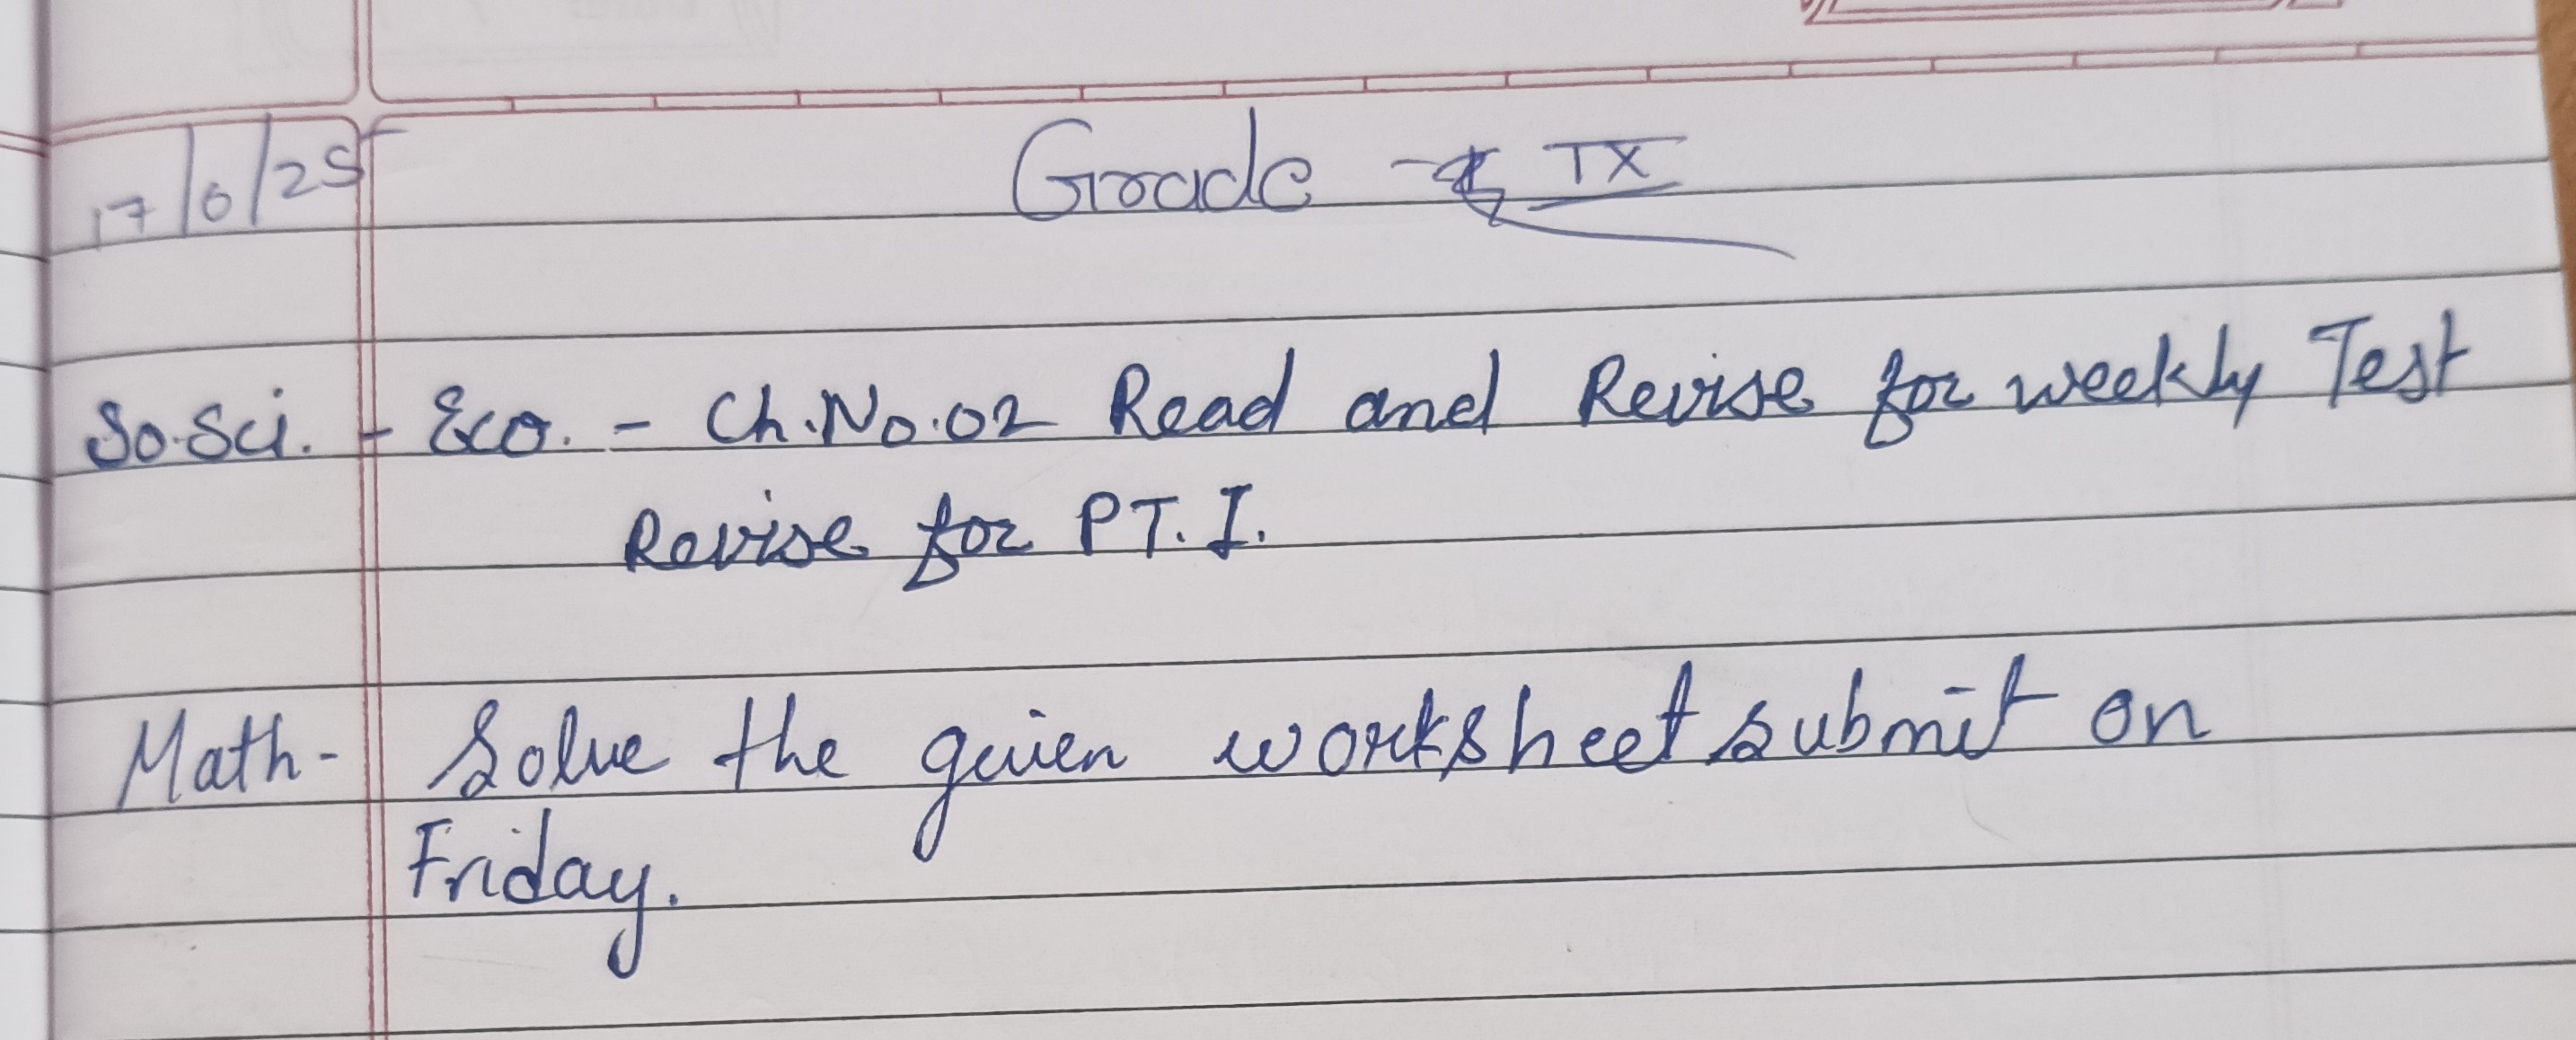 17/6/25 Grade - IX
So.Sci. - Eco. - Ch.No.02 Read and Revise for weekly Test
Revise for PT.I.
Math- Solve the given worksheet submit on
Friday.